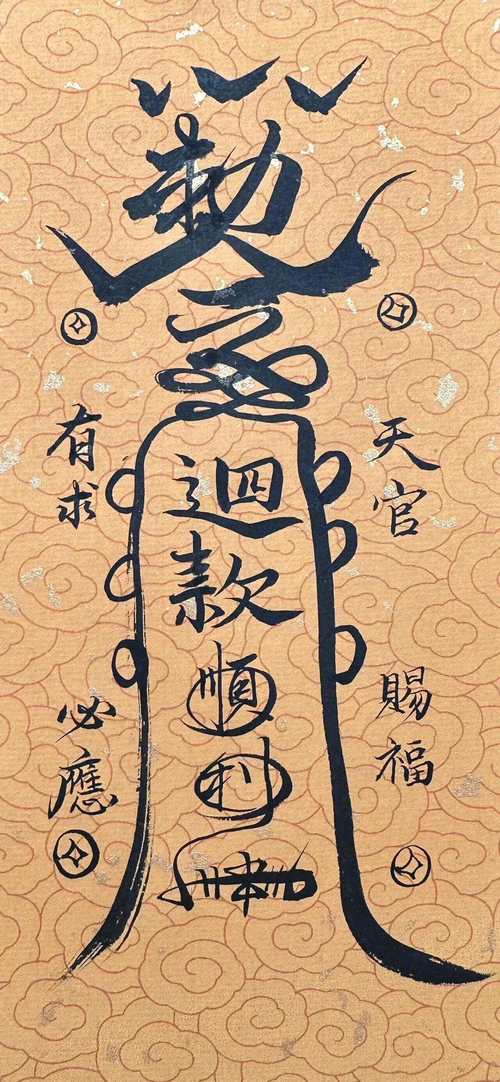 勅
天官賜福
迴款順利
有求必應